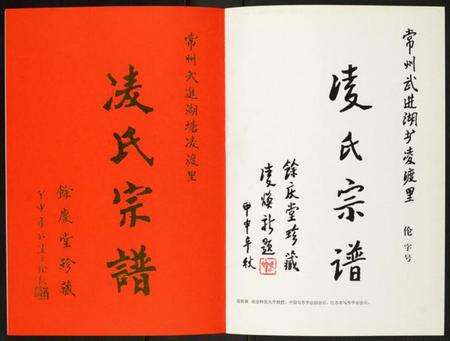 常州武进湖圹凌渡里
伦字号
凌氏宗譜
餘庆堂珍藏
凌焕新题
甲申年秋
常州武進湖塘凌渡里
凌氏宗譜
餘慶堂珍藏